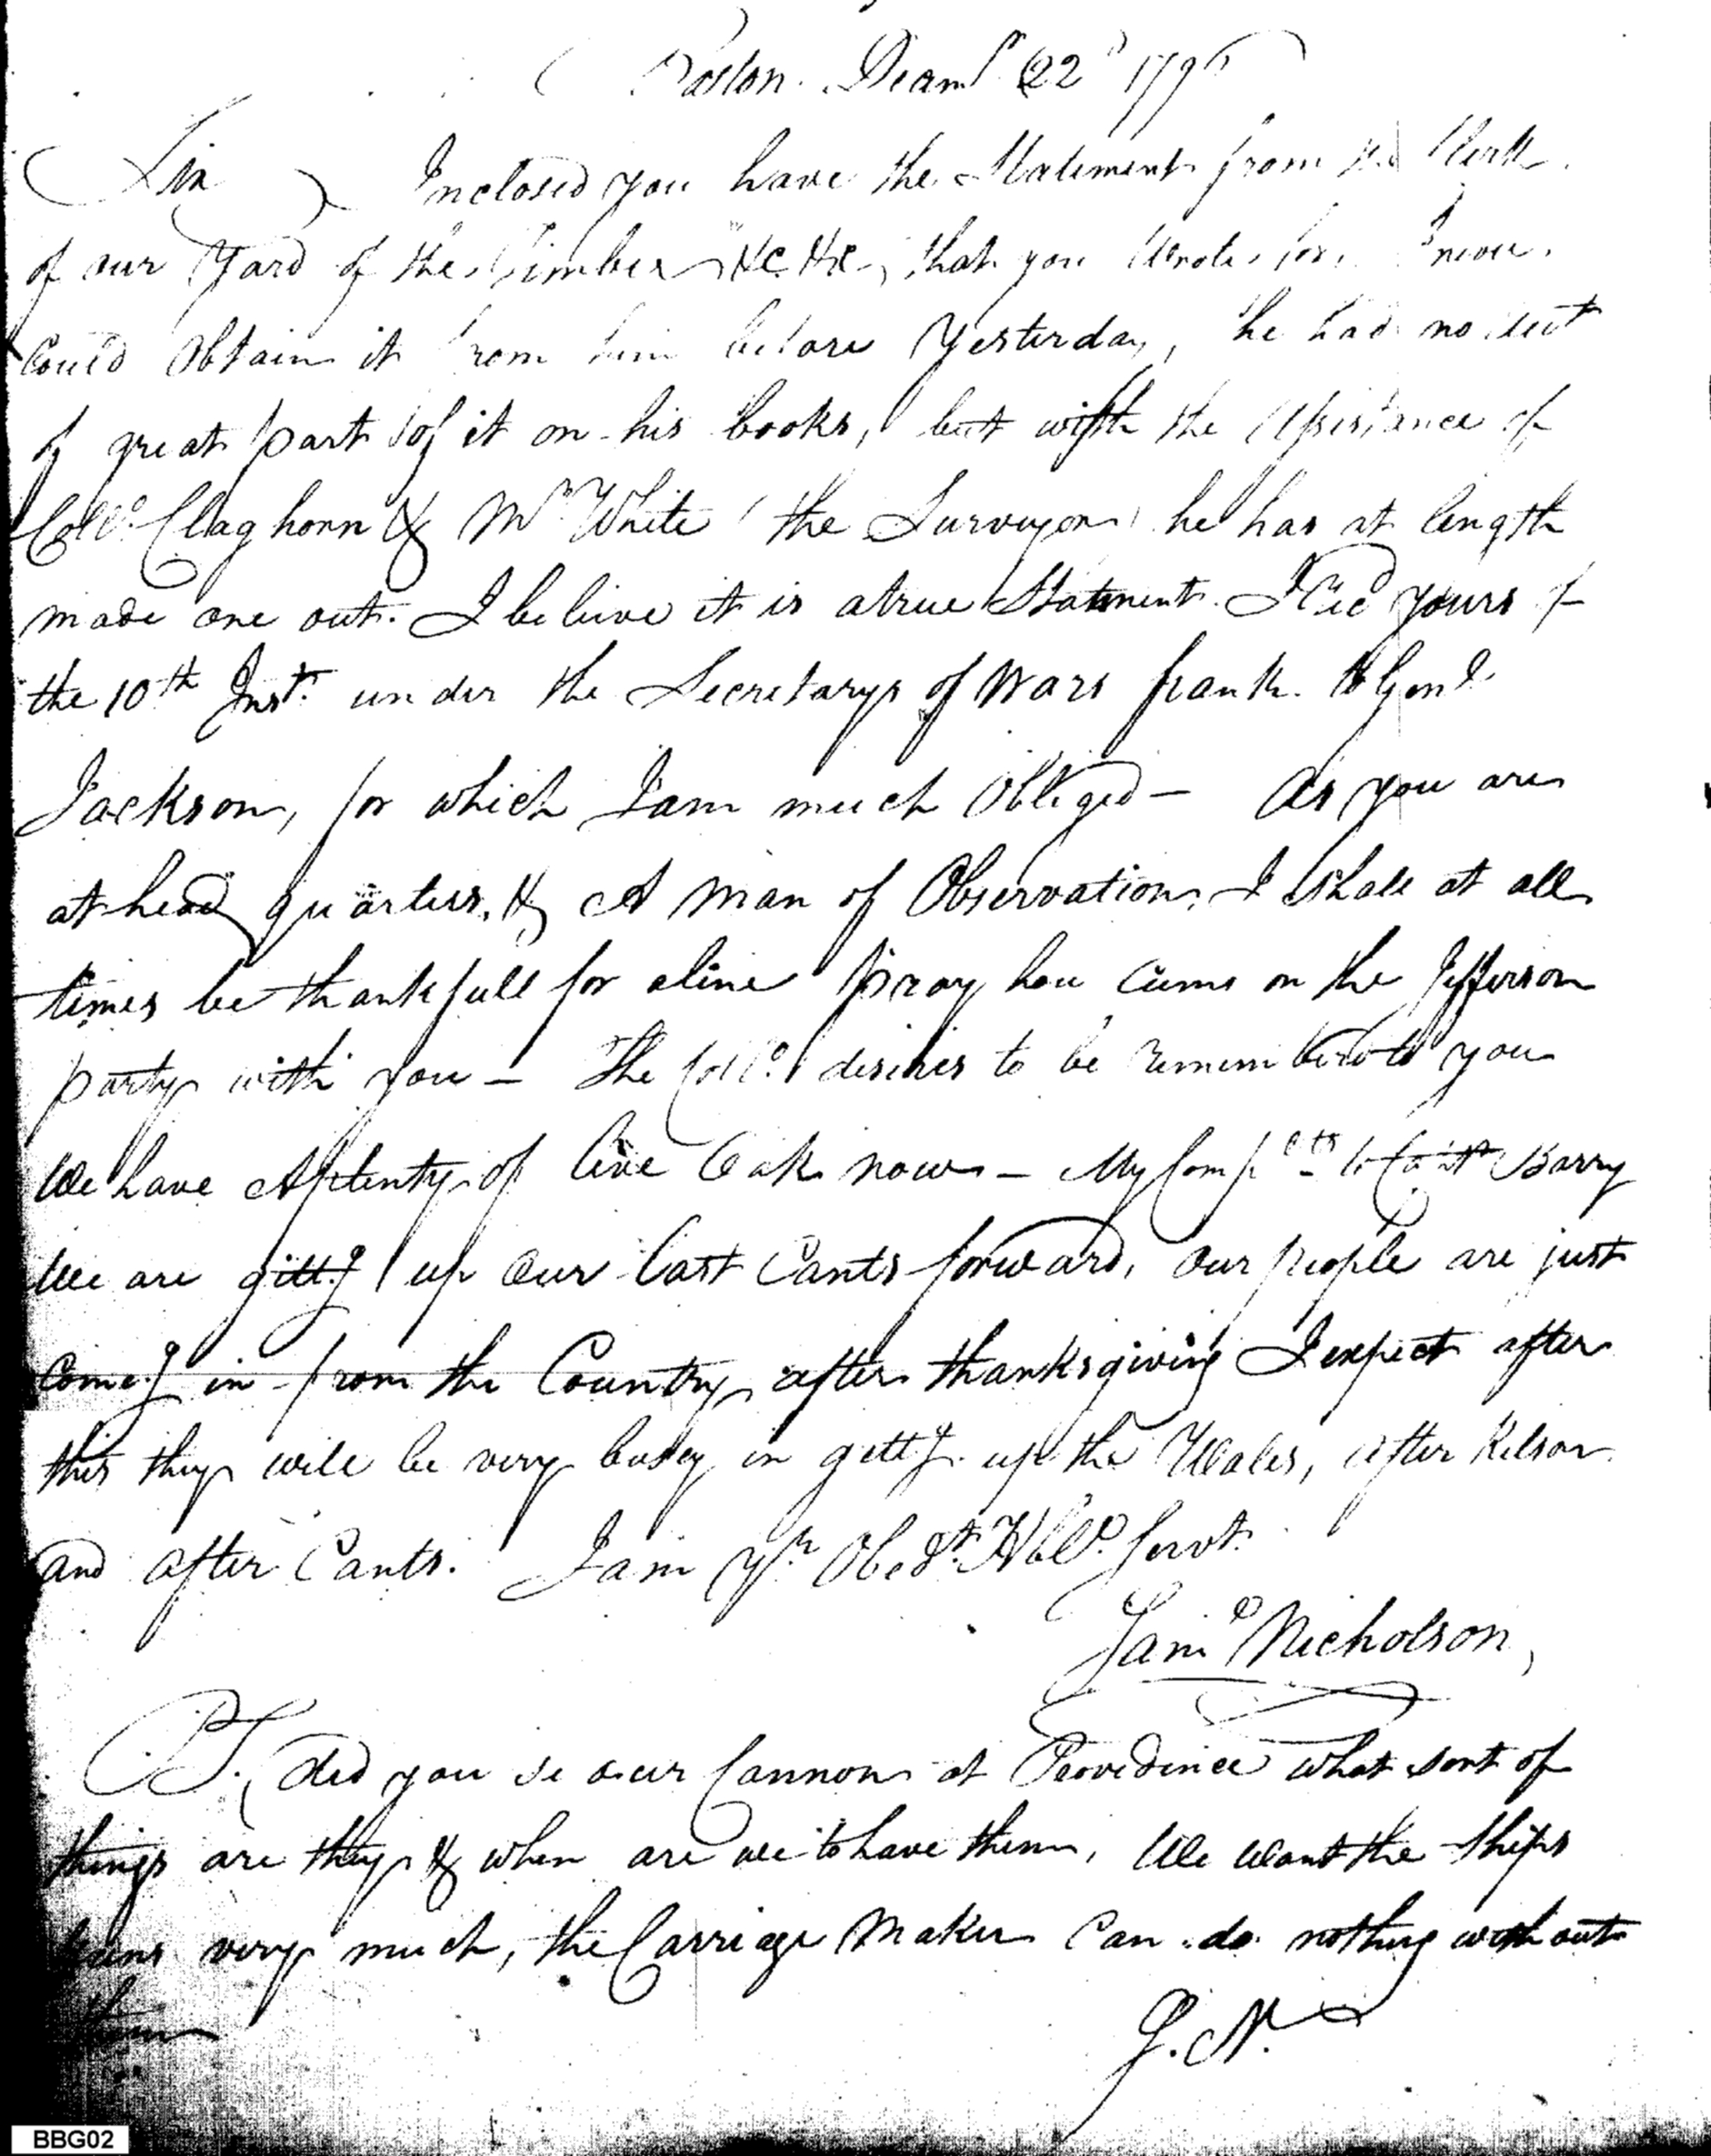 Boston. Decemr 22d 1796
Sir Inclosed you have the Statement from the Clerk
of our Yard of the Timber &c &c, that you Wrote for, I never
Could Obtain it from him before Yesterday, he had not
of great part of it on his books, but with the Assistance of
Collo. Claghorn & Mr White the Surveyor he has at length
made one out. I beleive it is a true Statment. I Recd yours of
the 10th Inst. under the Secretarys of Wars frank to Genl
Jackson, for which I am much Obliged — As you are
at head quarters, & A Man of Observation, I shall at all
times be thankfull for a line Pray how Cums on the Jefferson
party with you — The Collo. desires to be remembred to you
We have A plenty of live Oak now — My Compts to Captn Barry
We are gittg up our last Cants forward, our people are just
Comeg in from the Country after thanksgiving I expect after
this they will be very busey in gettg up the Wales, after Kelson
and after Cants. I am Yr Obedt Hble Servt.
Saml Nicholson,
PS. did you se our Cannon at Providence what sort of
things are they & when are we to have them, We want the Ships
Guns very much, the Carriage Maker Can do nothing without
them
S. N.
BBG02